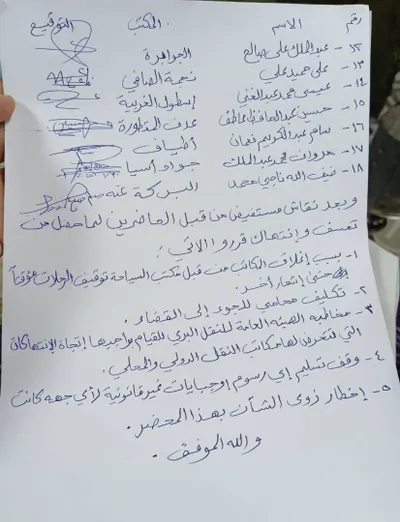 رقم الاسم المكتب التوقيع
١٢- عبدالملك علي صالح الجواهرة
١٣- علي حميد علي نجمة الصافي
١٤- عيسى محمد عبدالغني إسطول الغربية
١٥- حسين عبدالحافظ عاطف عدن المتطورة
١٦- سام عبدالكريم نعمان أطياف
١٧- مروان محمد عبدالملك جواد آسيا
١٨- ضيف الله ناجي محمد البركة عنه
وبعد نقاش مستفيض من قبل الحاضرين لما حصل من
تعسف وإنتهاك قرروا الآتي:
١- بسبب إغلاق المكاتب من قبل مكتب السياحة توقيف الرحلات مؤقتاً
حتى إشعار آخر.
٢- تكليف محامي للجوء إلى القضاء.
٣- مخاطبة الهيئة العامة للنقل البري للقيام بواجبها إتجاه الإنتهاكات
التي تتعرض لها مكاتب النقل الدولي والمحلي.
٤- وقف تسليم إي رسوم أوجبايات غير قانونية لأي جهه كانت
٥- إخطار ذوي الشأن بهذا المحضر.
والله الموفق.